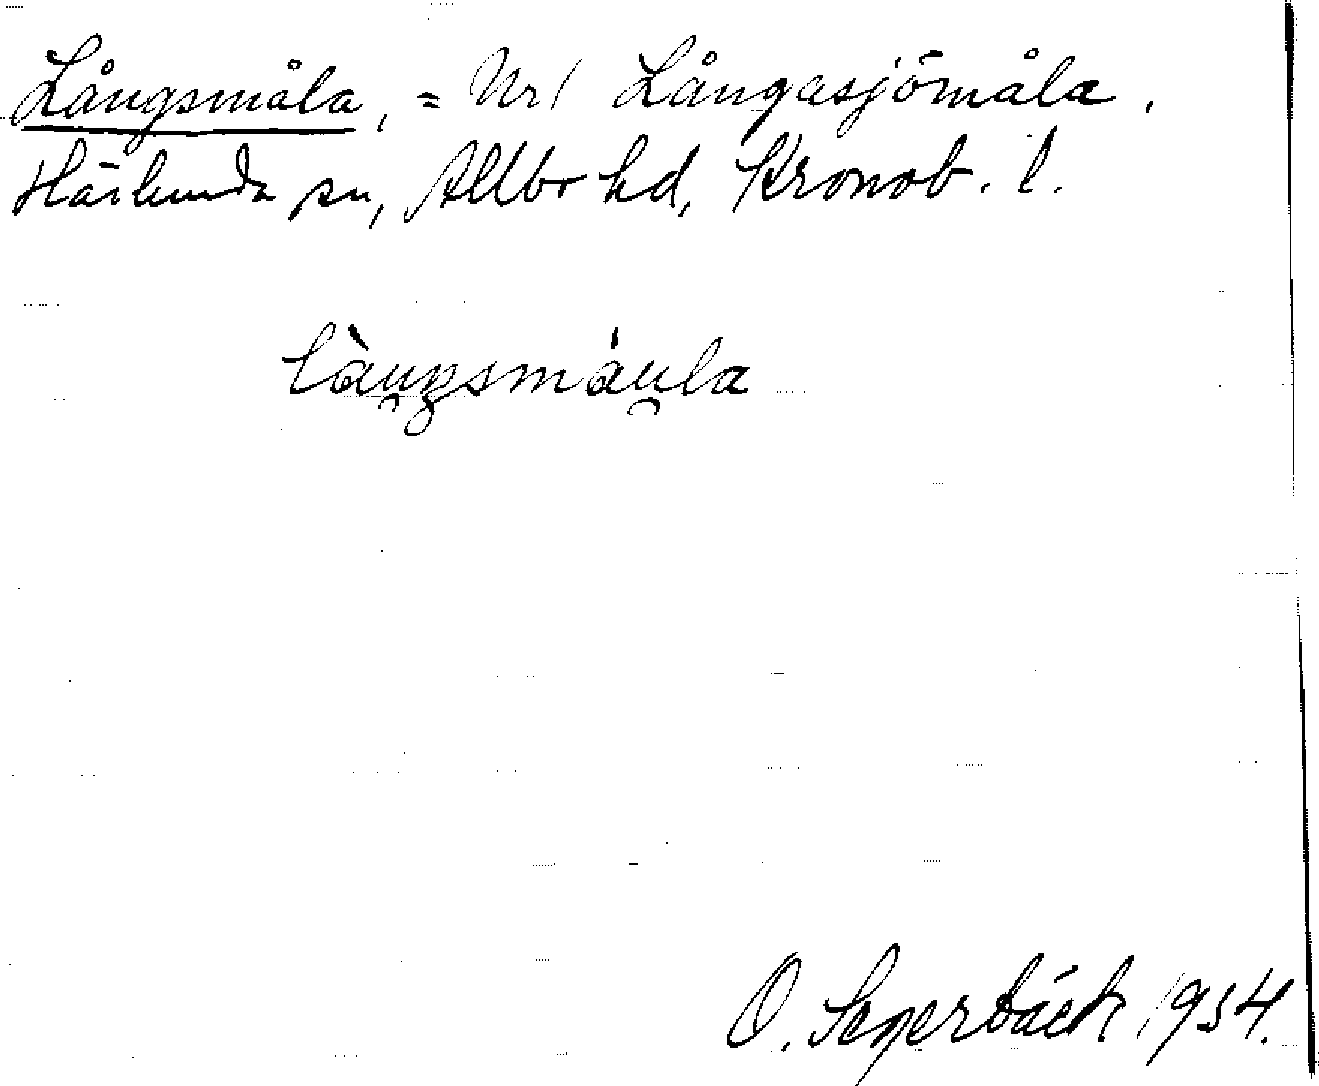 Långsmåla, = Nr 1 Långasjömåla.
Härlunda sn, Allbo hd, Kronob. l.
làu̯ŋsmáu̯la
O. Segerbäck 1954.